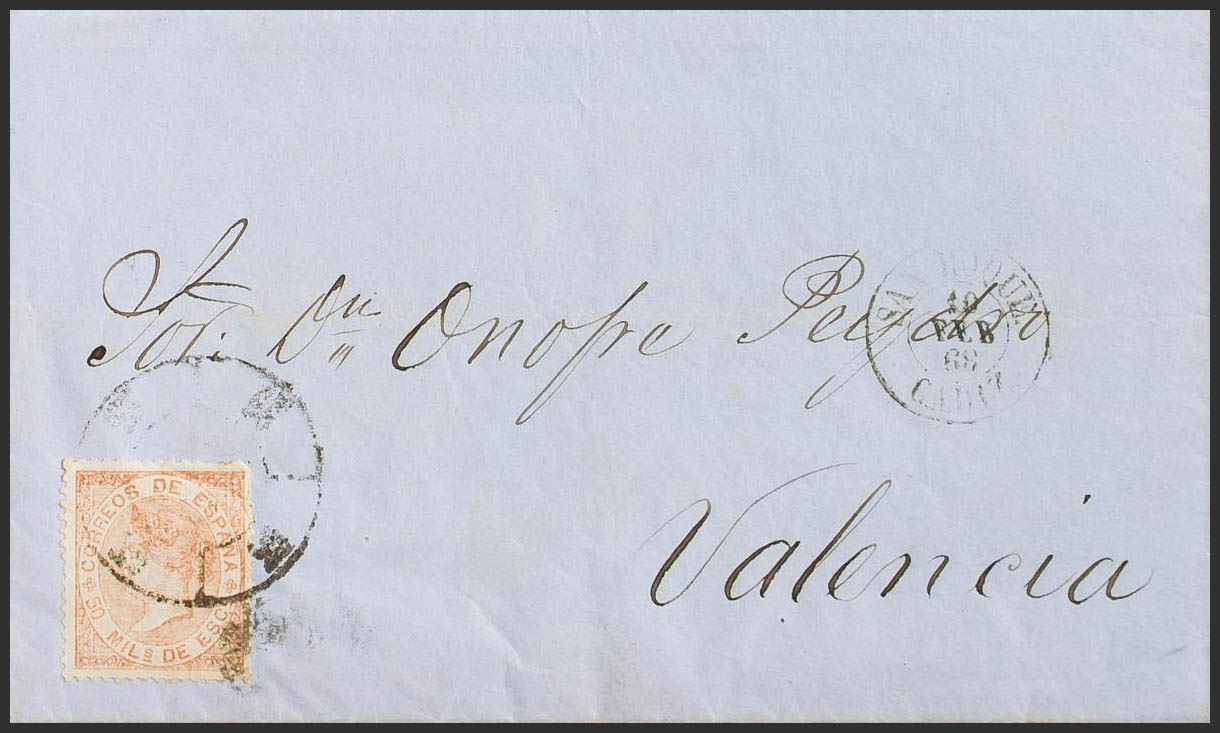 Sor. Dn. Onofre
Valencia
SAN ROQUE
10
FEB
68
CADIZ
CORREOS DE ESPAÑA
50 MILS DE ESC